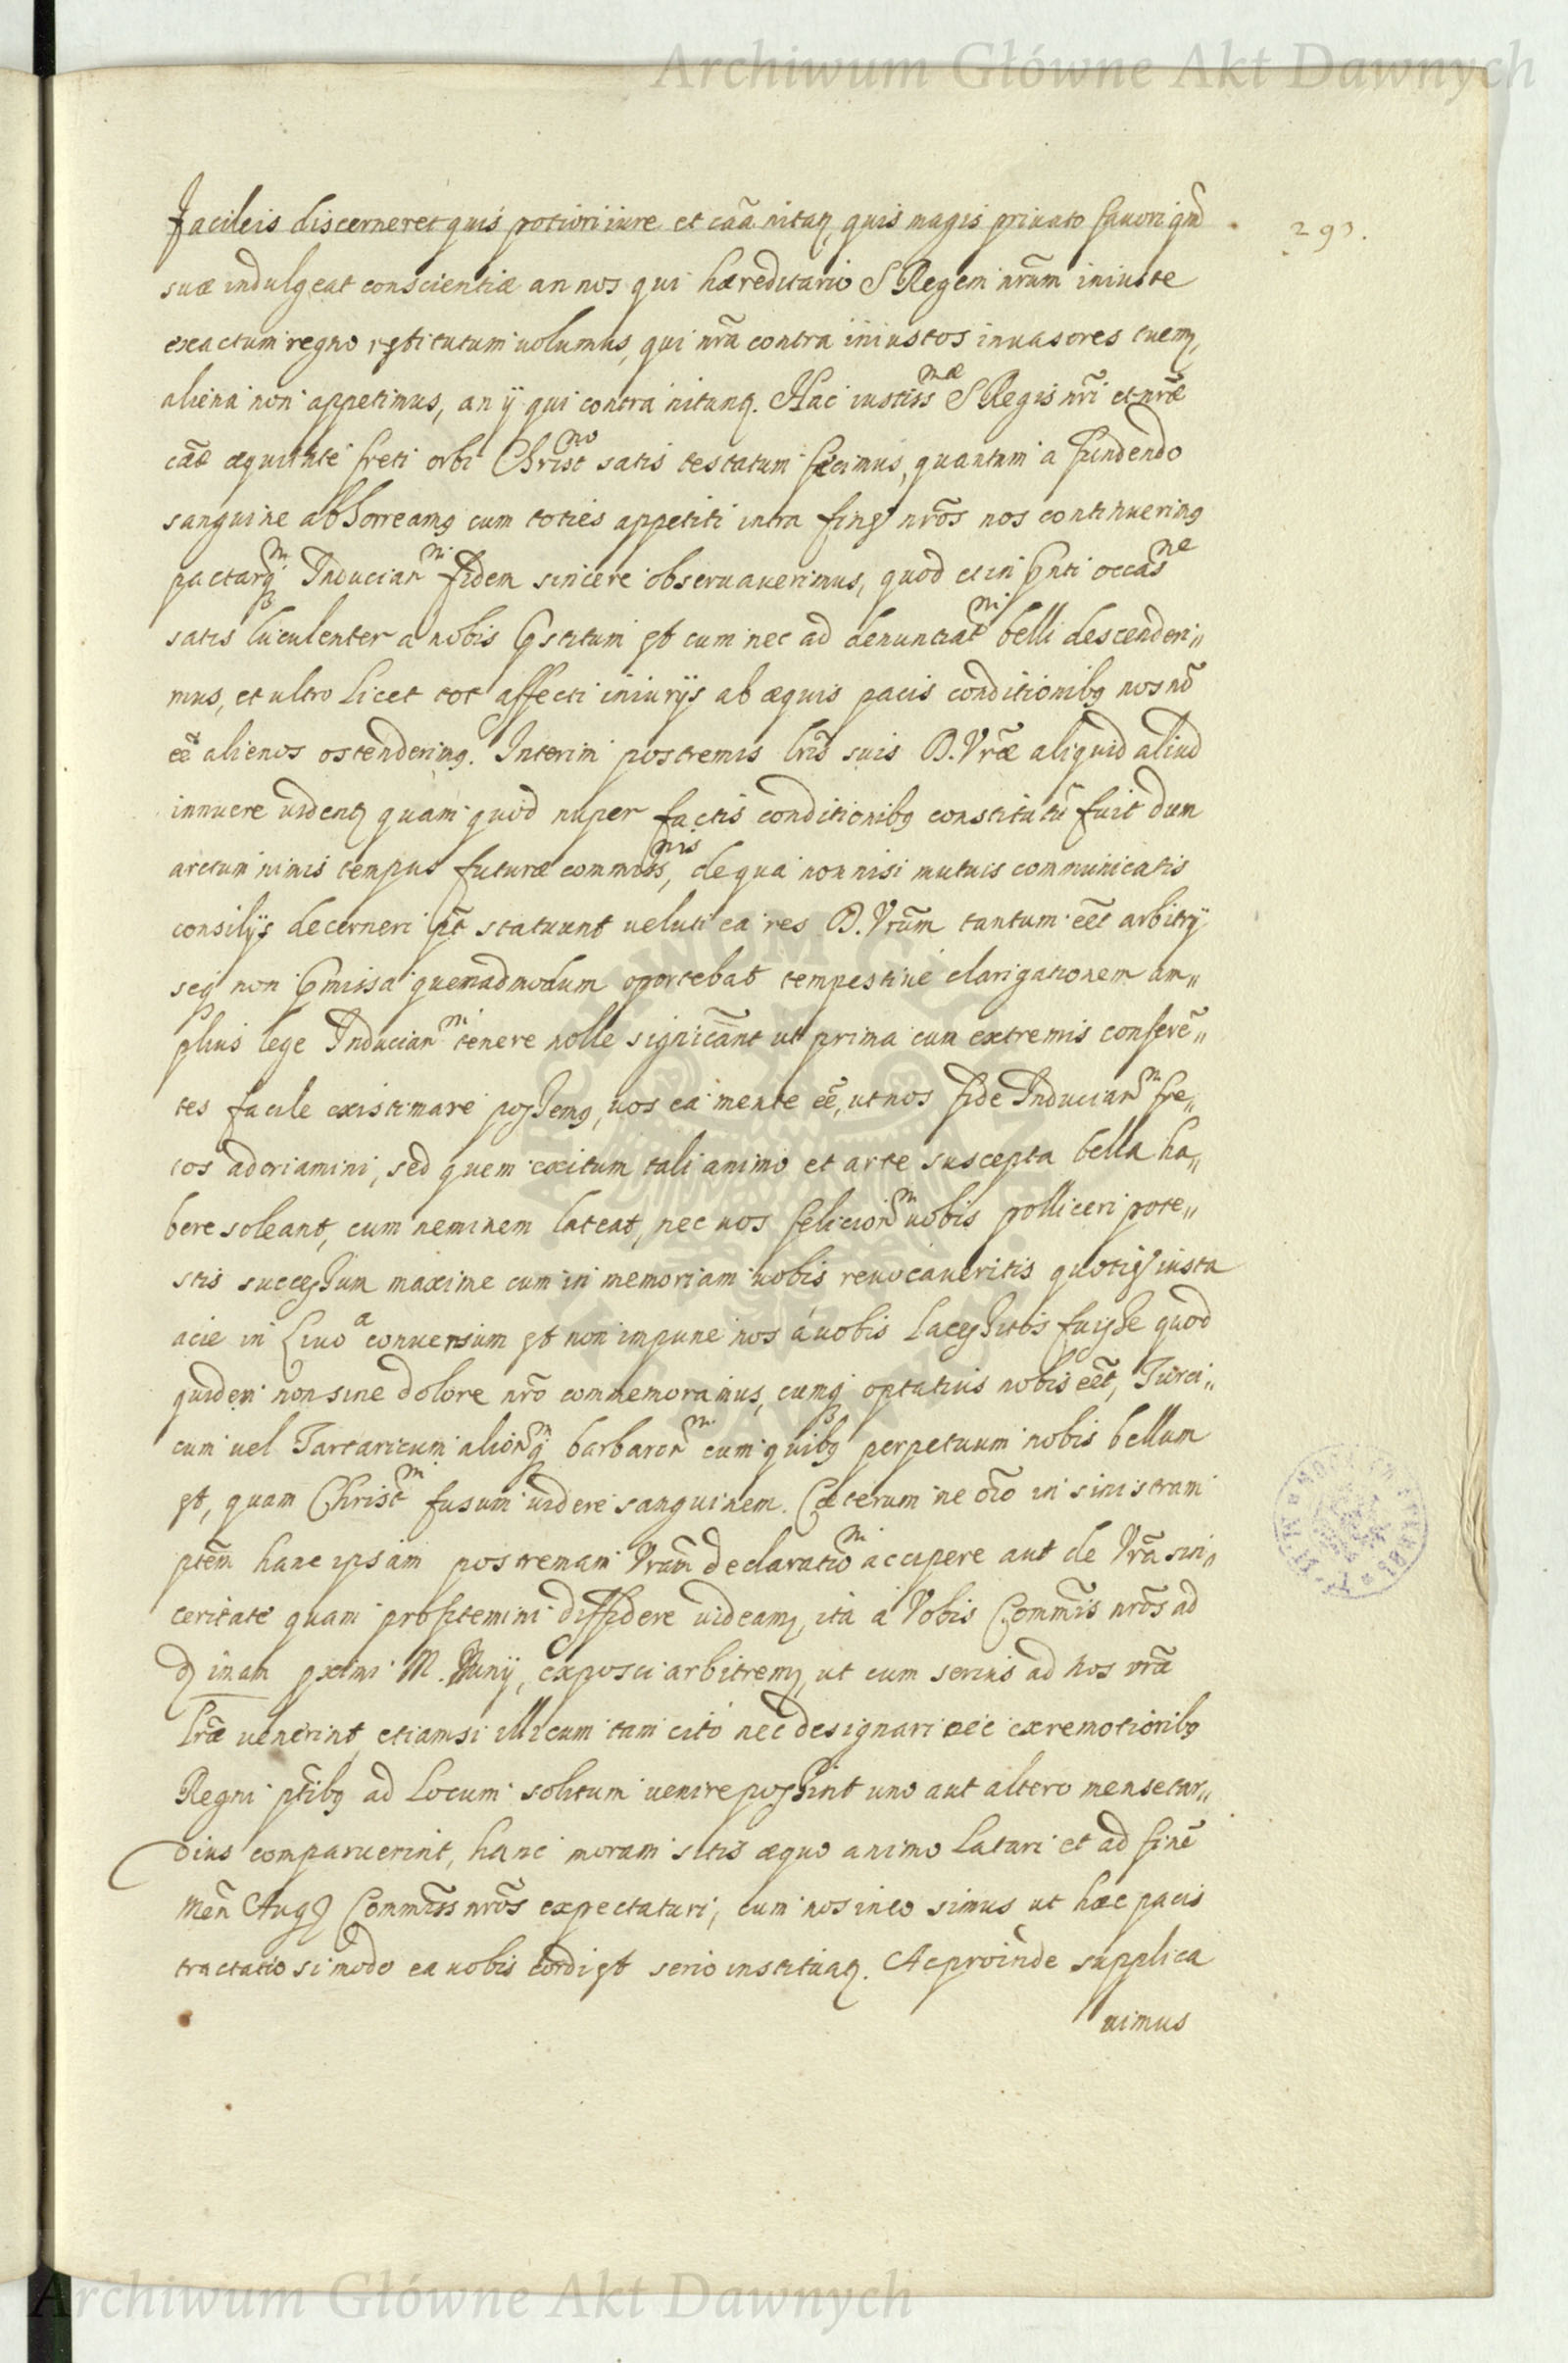 Archiwum Główne Akt Dawnych
293.
facile is discerneret quis potiori iure et caã nitaț, quis magis priuato fauori qm̃
suæ indulgeat conscientiæ an nos qui hæreditario S Regem nrũm iniuste
exactum regno restitutum uolumus, qui nrã contra iniustos inuasores tuemț,
aliena non appetimus, an ij qui contra nitunț. Hac iustissᵐᵃᵉ S Regis nrĩ et nrãe
cãæ æquitate freti orbi Christⁿᵒ satis testatum fecimus, quantum a fundendo
sanguine abhorreamꝰ cum toties appetiti intra fines nrõs nos continuerimꝰ
pactarᵐqꝫ Induciarᵐ fidem sincere obseruauerimus, quod et in pñti occasⁿᵉ
satis luculenter a nobis pstitum est cum nec ad denunciatᵐ belli descenderi„
mus, et ultro licet tot affecti iniurijs ab æquis pacis conditionibꝰ nos nõ
eẽ alienos ostenderimꝰ. Interim postremis lrĩs suis D. Vrãe aliquid aliud
innuere uidenț quam quod nuper factis conditionibꝰ constitutũ fuit dum
arctum nimis tempus futuræ commissⁿⁱˢ, de qua non nisi mutuis communicatis
consilijs decerneri pt̃ statuunt ueluti ea res D. Vrãm tantum eẽt arbitrij
seqꝫ non pmissa quemadmodum oportebat tempestiue clarigationem am„
plius lege Induciarᵐ tenere nolle significãnt ut prima cum extremis conferẽ„
tes facile existimare possemꝰ, uos ea mente eẽ, ut nos fide Induciarᵐ fre„
tos adoriamini, sed quem exitum tali animo et arte suscepta bella ha„
bere soleant, cum neminem lateat, nec uos feliciorᵐ uobis polliceri pote„
stis successum maxime cum in memoriam uobis reuocaueritis quoties iusta
acie in Liuoᵃ conuersum est non impune nos á uobis lacessitos fuisse quod
quidem non sine dolore nrõ commemoramus, cumqꝫ optatius nobis eẽt, Turci„
cum uel Tartaricum aliorᵐqꝫ barbarorᵐ cum quibꝰ perpetuum nobis bellum
est, quam Christᵐ fusum uidere sanguinem. Cæterum ne oĩo in sinistram
ptẽm hanc ipsam postremam Vrãm declaratioᵐ accipere aut de Vrã sin„
ceritate quam profitemini diffidere uideamț, ita a Vobis Commĩs nrõs ad
inam pximi M. Junij, exposci arbitremț, ut cum serius ad nos vrã
lrãe uenerint, etiamsi illi cum tam cito nec designari nec ex remotioribꝰ
Regni ptĩbꝰ ad locum solitum uenire possint uno aut altero mense tar„
dius comparuerint, hanc moram sitis æquo animo laturi et ad finẽ
Men̄ Augț Commĩss nrõs expectaturi, cum nos in eo simus ut hæc pacis
tractatio si modo ea uobis cordi est serio instituaț. Ac proinde supplica
uimus
Archiwum Główne Akt Dawnych